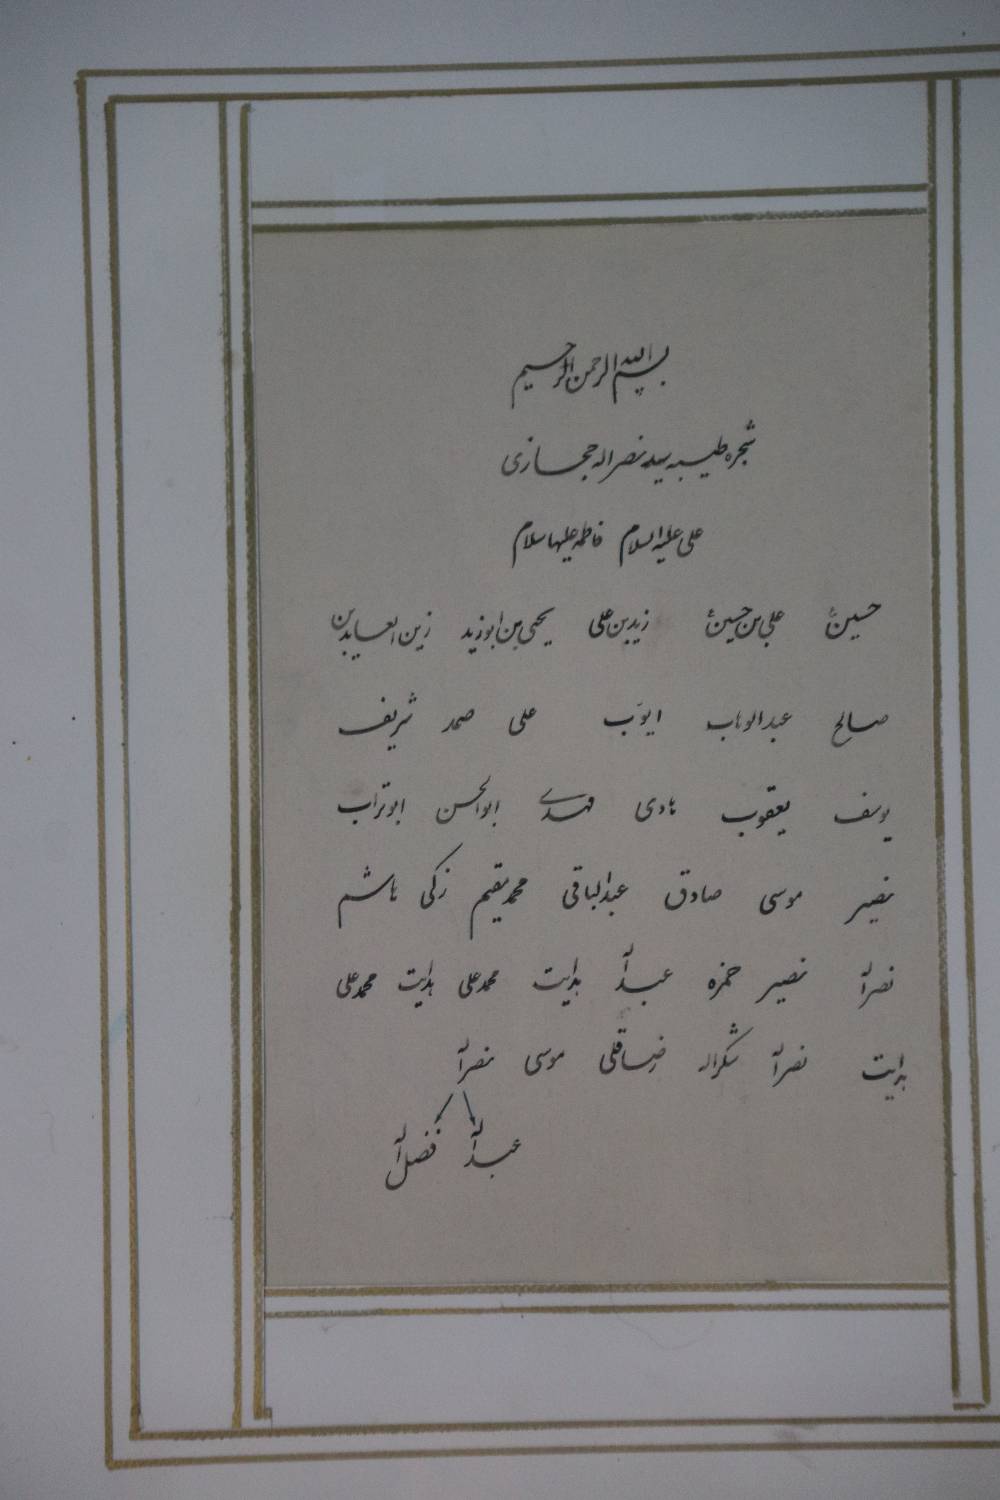 بسم الله الرحمن الرحیم
شجره طیبه سید نصراله حجازی
علی علیه السلام فاطمه علیها سلام
حسین علی بن حسین زید بن علی یحیی بن ابوزید زین العابدین
صالح عبدالوهاب ایوب علی صمد شریف
یوسف یعقوب هادی مهدی ابوالحسن ابوتراب
نصیر موسی صادق عبدالباقی محمد مقیم زکی هاشم
نصراله نصیر حمزه عبداله هدایت محمدعلی هدایت محمدعلی
هدایت نصراله شکراله رضاقلی موسی نصراله
عبداله فضل اله